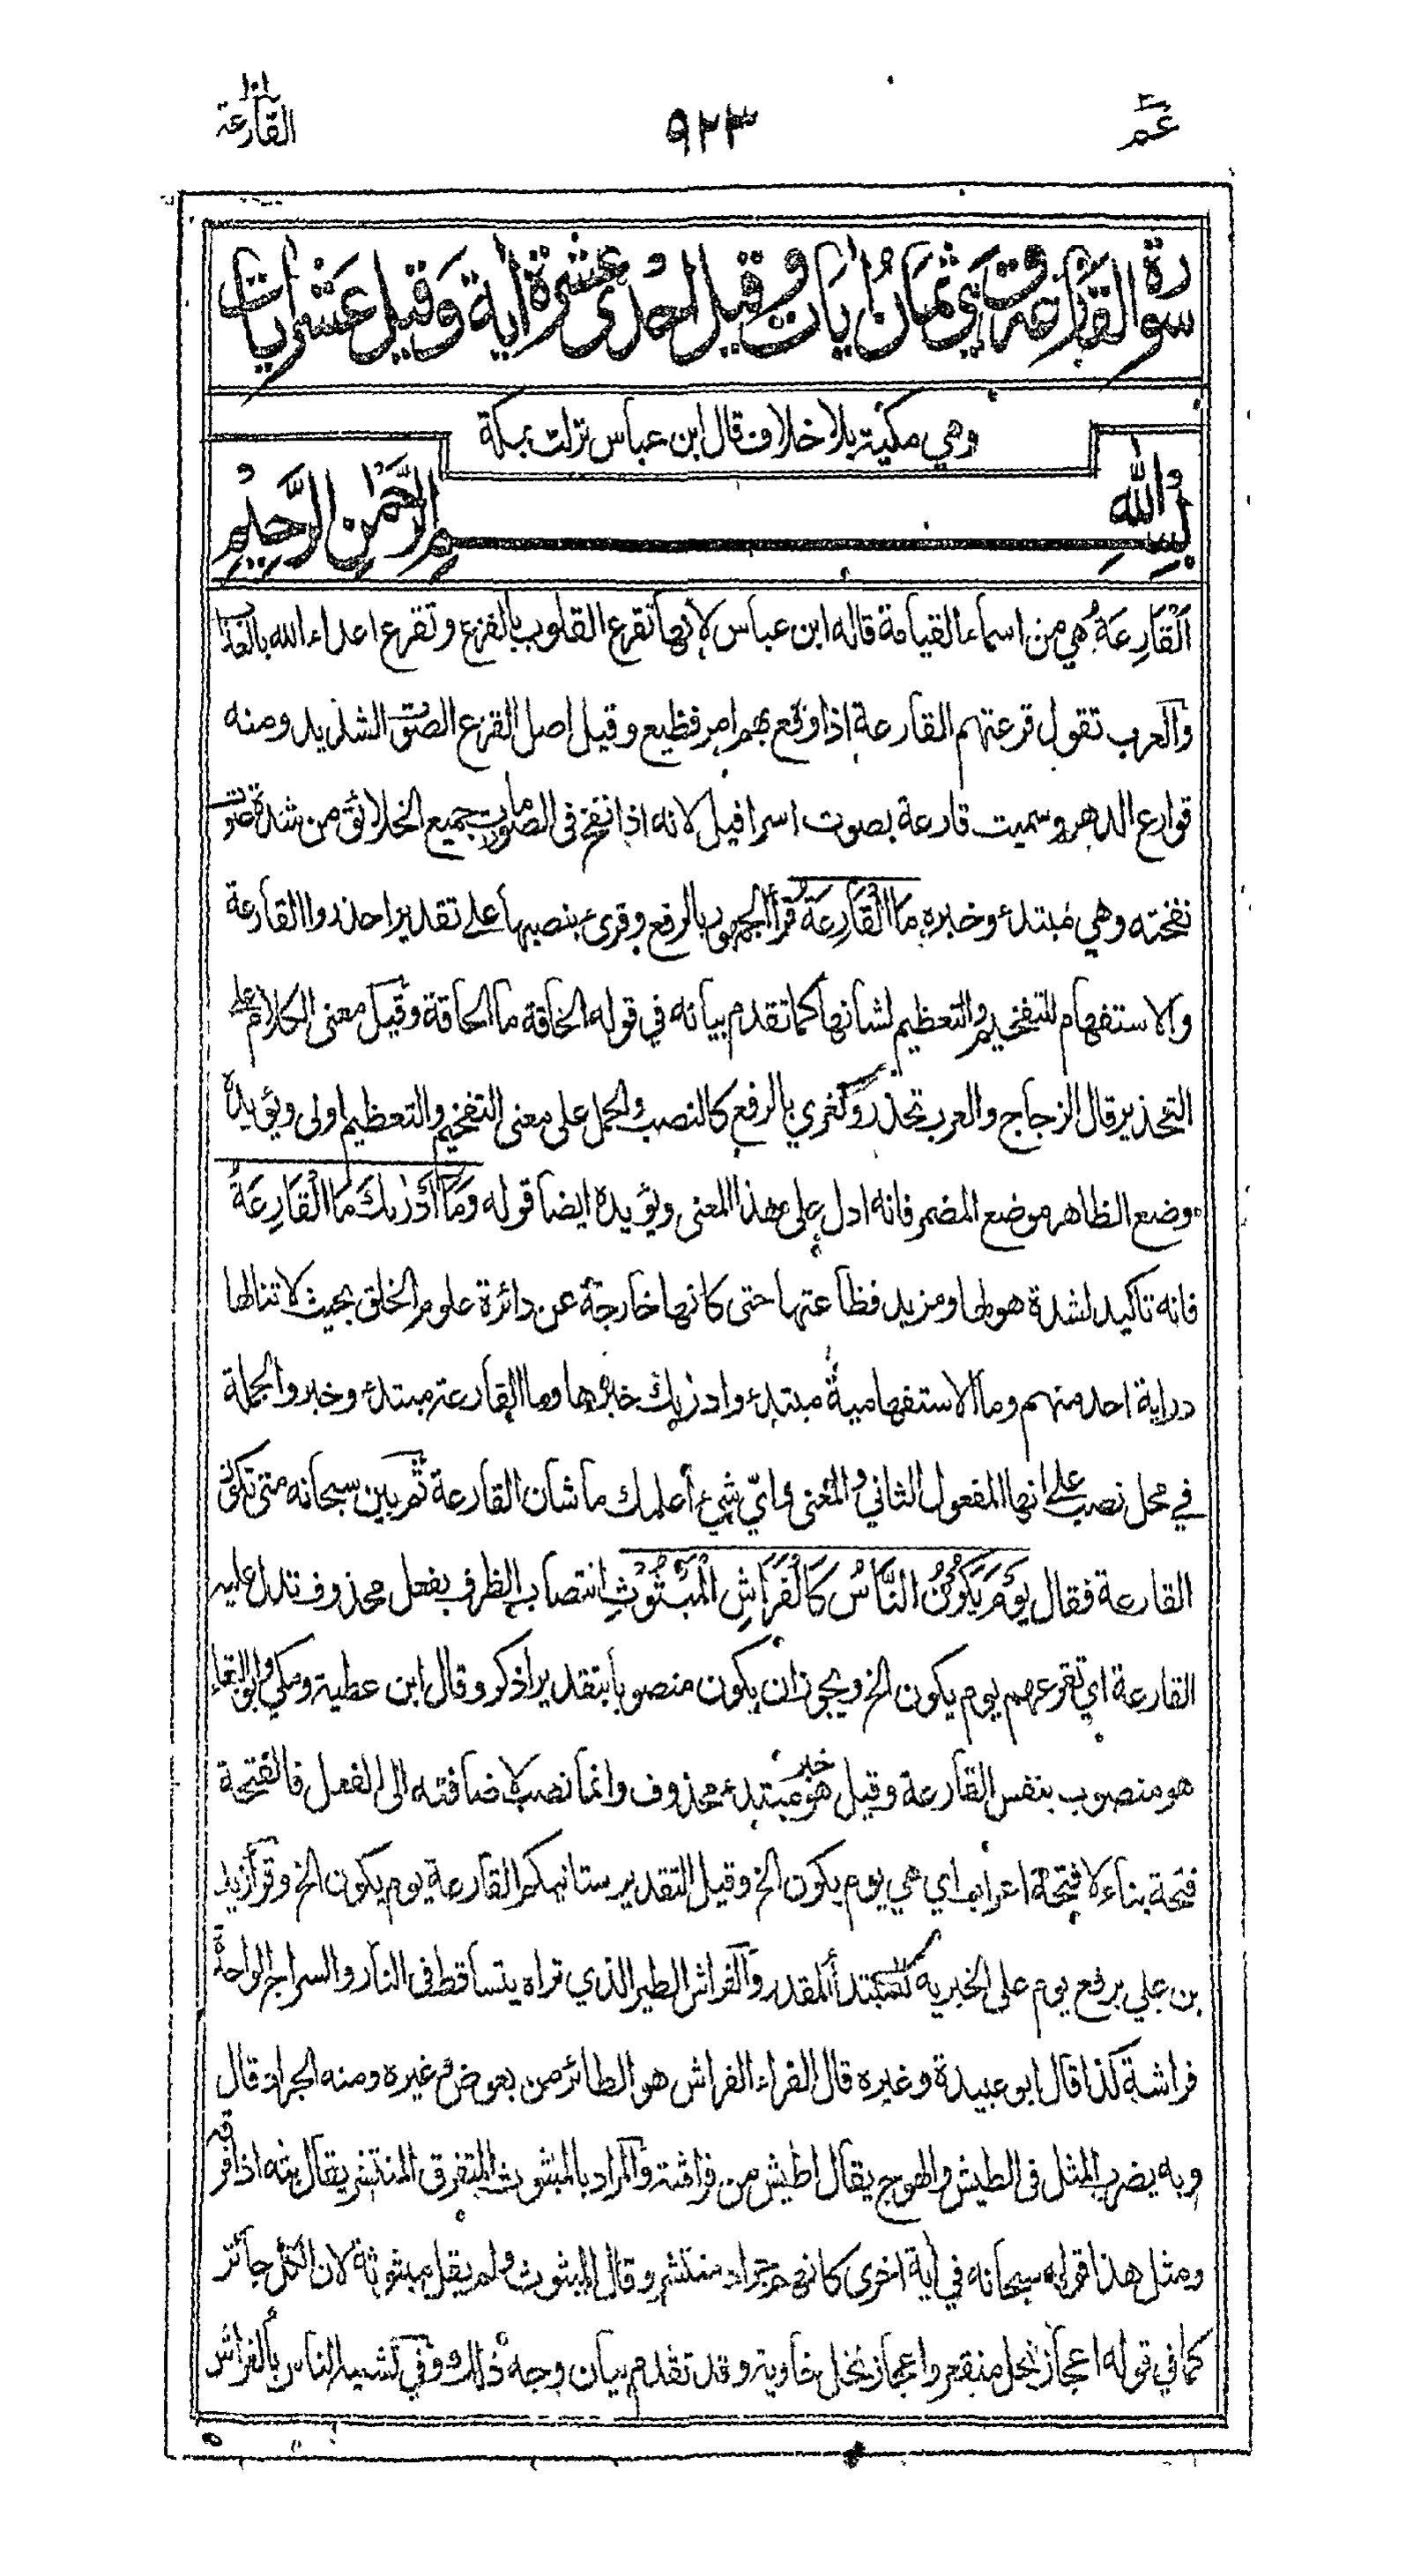 عم ٣٠
٩٢٣
القارعة ١٠١
سورة القارعة وهي ثمان ايات وقيل احدى عشرة اية وقيل عشر ايات
وهي مكية بلا خلاف قال ابن عباس نزلت بمكة
بسم الله الرحمن الرحيم
اَلْقَارِعَةُ هي من اسماء القيامة قاله ابن عباس لانها تقرع القلوب بالفزع وتقرع اعداء الله بالعذاب
والعرب تقول قرعتهم القارعة اذا وقع بهم امر فظيع وقيل اصل القرع الصوت الشديد ومنه
قوارع الدهر وسميت قارعة بصوت اسرافيل لانه اذا نفخ فى الصور مات جميع الخلائق من شدة صوت
نفخته وهي مبتدء وخبره مَا الْقَارِعَةُ قرأ الجمهور بالرفع وقرئ بنصبها على تقدير احذروا القارعة
والاستفهام للتفخيم والتعظيم لشانها كما تقدم بيانه في قوله الحاقة ما الحاقة وقيل معنى الكلام على
التحذير قال الزجاج والعرب تحذر وتغري بالرفع كالنصب والحمل على معنى التفخيم والتعظيم اولى ويؤيده
وضع الظاهر موضع المضمر فانه ادل على هذا المعنى ويؤيده ايضا قوله وَمَا أَدْرٰىكَ مَا الْقَارِعَةُ
فانه تاكيد لشدة هولها ومزيد فظاعتها حتى كانها خارجة عن دائرة علوم الخلق بحيث لا تنالها
دراية احد منهم وما الاستفهامية مبتدء وادرٰىك خبرها وما القارعة مبتدء وخبر والجملة
في محل نصب على انها المفعول الثاني والمعنى واي شيء أعلمك ما شان القارعة ثم بين سبحانه متى تكون
القارعة فقال يَوْمَ يَكُوْنُ النَّاسُ كَالْفَرَاشِ الْمَبْثُوْثِ انتصاب الظرف بفعل محذوف تدل عليه
القارعة اي تقرعهم يوم يكون الخ ويجوز ان يكون منصوبا بتقدير اذكر وقال ابن عطية ومكي وابو البقاء
هو منصوب بنفس القارعة وقيل هو خبر مبتدء محذوف وانما نصب لاضافته الى الفعل فالفتحة
فتحة بناء لا فتحة اعراب اي هي يوم يكون الخ وقيل التقدير ستاتيكم القارعة يوم يكون الخ وقرأ زيد
بن علي برفع يوم على الخبرية للمبتدأ المقدر والفراش الطير الذي تراه يتساقط فى النار والسراج الواحدة
فراشة كذا قال ابو عبيدة وغيره قال الفراء الفراش هو الطائر من بعوض وغيره ومنه الجراد قال
وبه يضرب المثل فى الطيش والهوج يقال اطيش من فراشة والمراد بالمبثوث المتفرق المنتشر يقال بثه اذا فرقه
ومثل هذا قوله سبحانه في اية اخرى كانهم جراد منتشر وقال المبثوث ولم يقل مبثوثة لان الكل جائز
كما في قوله اعجاز نخل منقعر واعجاز نخل خاوية وقد تقدم بيان وجه ذلك وفي تشبيه الناس بالفراش